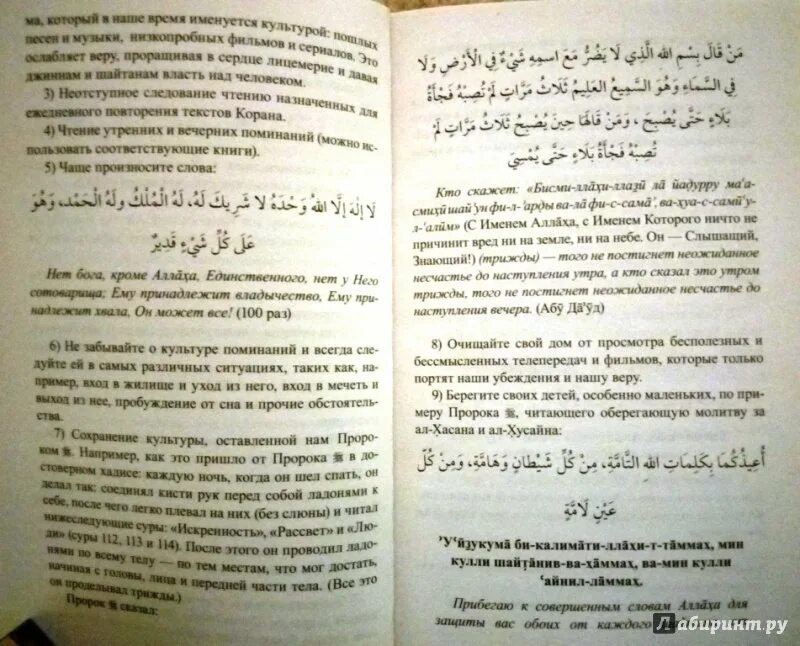 ма, который в наше время именуется культурой: пошлых
песен и музыки, низкопробных фильмов и сериалов. Это
ослабляет веру, проращивая в сердце лицемерие и давая
джиннам и шайтанам власть над человеком.
3) Неотступное следование чтению назначенных для
ежедневного повторения текстов Корана.
4) Чтение утренних и вечерних поминаний (можно ис-
пользовать соответствующие книги).
5) Чаще произносите слова:
لَا إِلَهَ إِلَّا اللهُ وَحْدَهُ لَا شَرِيكَ لَهُ، لَهُ الْمُلْكُ وَلَهُ الْحَمْدُ، وَهُوَ
عَلَى كُلِّ شَيْءٍ قَدِيرٌ
Нет бога, кроме Алла̄ха, Единственного, нет у Него
сотоварища; Ему принадлежит владычество, Ему при-
надлежит хвала, Он может все! (100 раз)
6) Не забывайте о культуре поминаний и всегда сле-
дуйте ей в самых различных ситуациях, таких как, на-
пример, вход в жилище и уход из него, вход в мечеть и
выход из нее, пробуждение от сна и прочие обстоятель-
ства.
7) Сохранение культуры, оставленной нам Проро-
ком ﷺ. Например, как это пришло от Пророка ﷺ в до-
стоверном хадисе: каждую ночь, когда он шел спать, он
делал так: соединял кисти рук перед собой ладонями к
себе, после чего легко плевал на них (без слюны) и читал
нижеследующие суры: «Искренность», «Рассвет» и «Лю-
ди» (суры 112, 113 и 114). После этого он проводил ладо-
нями по всему телу — по тем местам, что мог достать,
начиная с головы, лица и передней части тела. (Все это
он проделывал трижды.)
Пророк ﷺ сказал:
مَنْ قَالَ بِسْمِ اللهِ الَّذِي لَا يَضُرُّ مَعَ اسْمِهِ شَيْءٌ فِي الْأَرْضِ وَلَا
فِي السَّمَاءِ وَهُوَ السَّمِيعُ الْعَلِيمُ ثَلَاثَ مَرَّاتٍ لَمْ تُصِبْهُ فَجْأَةُ
بَلَاءٍ حَتَّى يُصْبِحَ ، وَمَنْ قَالَهَا حِينَ يُصْبِحُ ثَلَاثَ مَرَّاتٍ لَمْ
تُصِبْهُ فَجْأَةُ بَلَاءٍ حَتَّى يُمْسِيَ
Кто скажет: «Бисми-лла̄хи-ллазӣ ла̄ йад̣урру ма‘а-
смихӣ шай’ун фи-л-’ард̣и ва-ла̄ фи-с-сама̄’, ва-хуа-с-самӣ‘у-
л-‘алӣм» (С Именем Алла̄ха, с Именем Которого ничто не
причинит вред ни на земле, ни на небе. Он — Слышащий,
Знающий!) (трижды) — того не постигнет неожиданное
несчастье до наступления утра, а кто сказал это утром
трижды, того не постигнет неожиданное несчастье до
наступления вечера. (Абӯ Да̄’ӯд)
8) Очищайте свой дом от просмотра бесполезных и
бессмысленных телепередач и фильмов, которые только
портят наши убеждения и нашу веру.
9) Берегите своих детей, особенно маленьких, по при-
меру Пророка ﷺ, читающего оберегающую молитву за
ал-Х̣асана и ал-Х̣усайна:
أُعِيذُكُمَا بِكَلِمَاتِ اللهِ التَّامَّةِ، مِنْ كُلِّ شَيْطَانٍ وَهَامَّةٍ، وَمِنْ كُلِّ
عَيْنٍ لَامَّةٍ
’У‘ӣз̱укума̄ би-калима̄ти-лла̄хи-т-та̄ммах, мин
кулли шайт̣а̄нив-ва-ха̄ммах, ва-мин кулли
‘айнил-ла̄ммах.
Прибегаю к совершенным словам Алла̄ха для
защиты вас обоих от каждого
Лабиринт.ру